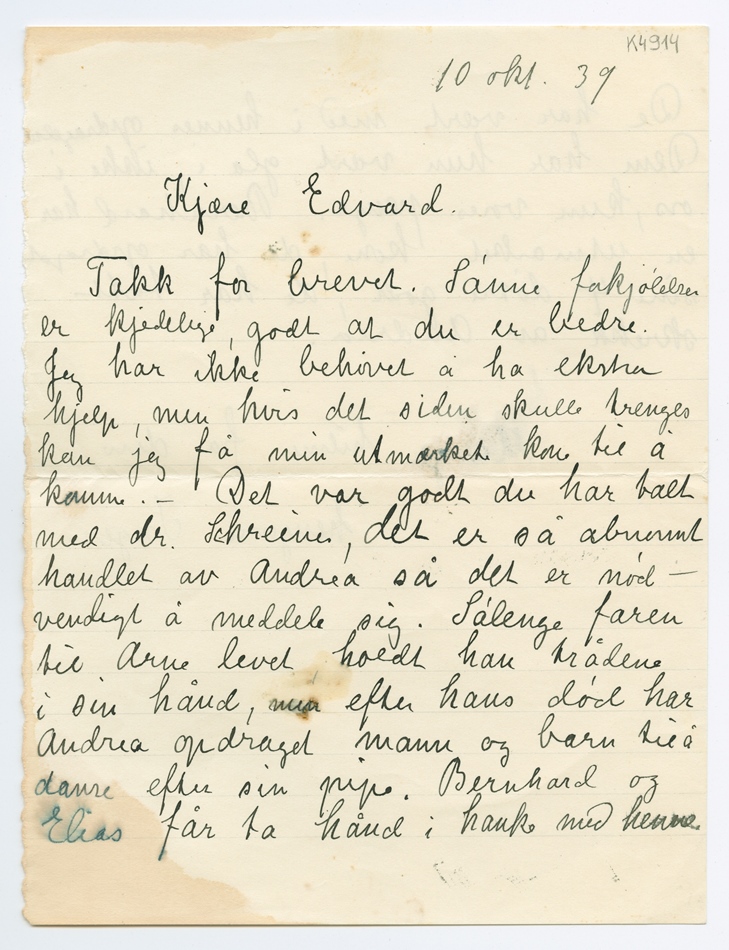 K4914
10 okt. 39
Kjære Edvard.
Takk for brevet. Sånne forkjölelser
er kjedelige, godt at du er bedre.
Jeg har ikke behövet å ha ekstra
hjelp, men hvis det siden skulle trenges
kan jeg få min utmærkete kone til å
komme. – Det var godt du har talt
med dr. Schreiner, det er så abnormt
handlet av Andréa så det er nöd-
vendigt å meddele sig. Sålenge faren
til Arne levet holdt han trådene
i sin hånd, men efter hans död har
Andrea opdraget mann og barn til å
danse efter sin pipe. Bernhard og
Elias får ta hånd i hanke med henne.